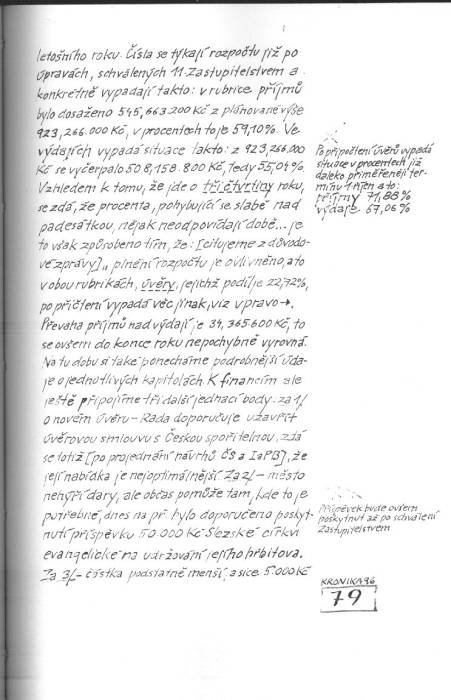 letošního roku. Čísla se týkají rozpočtu již po
úpravách, schválených 11. Zastupitelstvem a
konkrétně vypadají takto: v rubrice příjmů
bylo dosaženo 545,663.200 Kč z plánované výše
923,266.000 Kč, v procentech to je 59,10%. Ve
výdajích vypadá situace takto: z 923,266.000
Kč se vyčerpalo 508,158.800 Kč, tedy 55,04%.
Vzhledem k tomu, že jde o tři čtvrtiny roku,
se zdá, že procenta, pohybující se slabě nad
padesátkou, nějak neodpovídají době... je
to však způsobeno tím, že: [citujeme z důvodo-
vé zprávy] „plnění rozpočtu je ovlivněno, a to
v obou rubrikách, úvěry, jejichž podíl je 22,72%,
po přičtení vypadá věc jinak, viz vpravo →.
Převaha příjmů nad výdaji je 34,365.600 Kč, to
se ovšem do konce roku nepochybně vyrovná.
Na tu dobu si také ponecháme podrobnější úda-
je o jednotlivých kapitolách. K financím ale
ještě připojíme tři další jednací body: za 1/
o novém úvěru - Rada doporučuje uzavřít
úvěrovou smlouvu s Českou spořitelnou, zdá
se totiž [po projednání návrhů ČS a IaPB], že
její nabídka je nejoptimálnější. Za 2/- město
nehýří dary, ale občas pomůže tam, kde to je
potřebné, dnes na př. bylo doporučeno poskyt-
nutí příspěvku 50.000 Kč Slezské církvi
evangelické na udržování jejího hřbitova.
Za 3/- částka podstatně menší, a sice 5.000 Kč
Po připočtení úvěrů vypadá
situace v procentech již
daleko přiměřeněji ter-
mínu 1. říjen a to:
příjmy 71,88%
výdaje 67,06%
Příspěvek bude ovšem
poskytnut až po schválení
Zastupitelstvem
KRONIKA 96
79